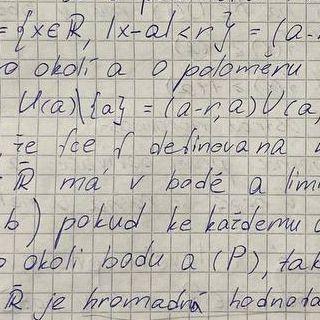 = {x∈ℝ, |x-a|<r} = (a-
o okolí a o poloměru
U(a)\{a} = (a-r,a)∪(a,
že fce f definovaná
ℝ̄ má v bodě a limi
b) pokud ke každému
o okolí bodu a (P), tak
ℝ̄ je hromadná hodnota